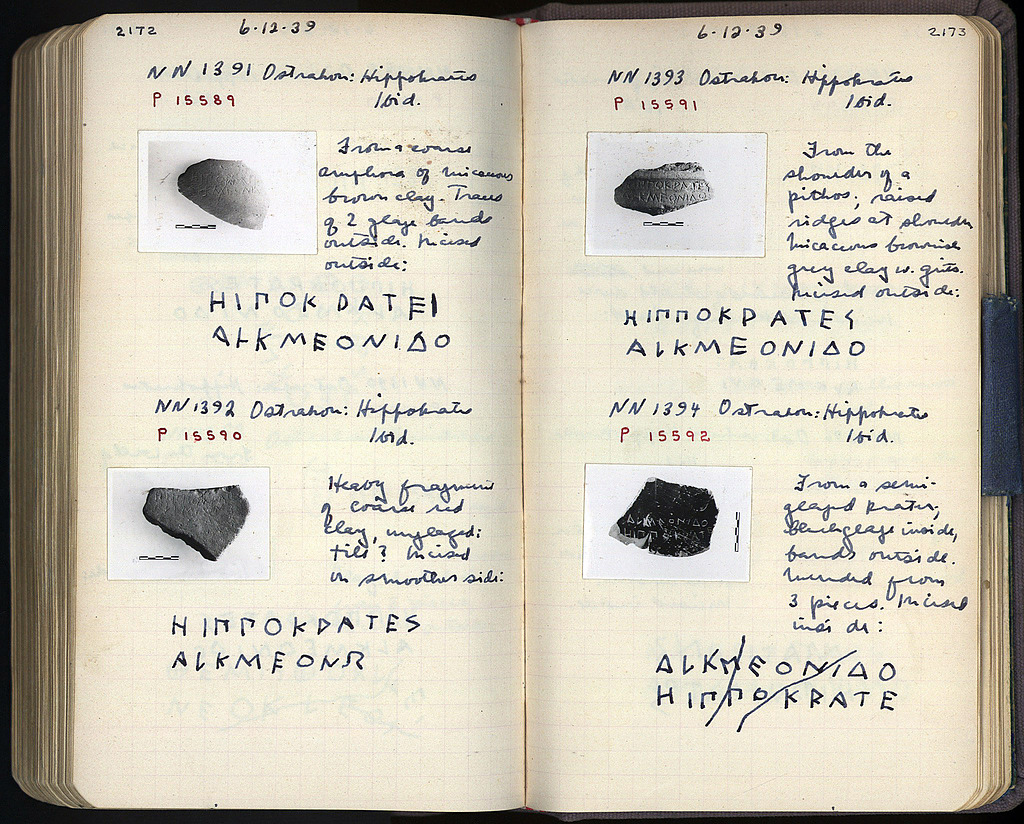 2172
6·12·39
NN 1391 Ostrakon: Hippokrates
P 15589
Ibid.
From a coarse
amphora of micaceous
brown clay. Traces
of 2 glaze bands
outside. Incised
outside:
ΗΙΠΟΚ DΑΤΕΙ
ΑLΚΜΕΟΝΙΔΟ
NN 1392 Ostrakon: Hippokrates
P 15590
Ibid.
Heavy fragment
of coarse red
clay, unglazed:
tile? Incised
on smoother side:
ΗΙΠΠΟΚDΑΤΕS
ΑLΚΜΕΟΝ
6·12·39
2173
NN 1393 Ostrakon: Hippokrates
P 15591
Ibid.
From the
shoulder of a
pithos; raised
ridges at shoulder
Micaceous brownish
grey clay w. grits.
Incised outside:
ΗΙΠΠΟΚDΑΤΕS
ΑLΚΜΕΟΝΙΔΟ
NN 1394 Ostrakon: Hippokrates
P 15592
Ibid.
From a semi-
glazed krater;
black glaze inside,
bands outside.
Mended from
3 pieces. Incised
inside:
ΔLΚΜΕΟΝΙΔΟ
ΗΙΠΠΟΚRΑΤΕ